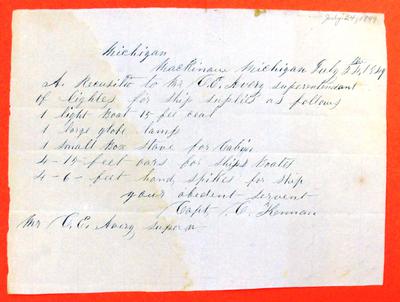 July 24, 1849
Michigan
Mackinaw Michigan July 24, 1849
A Recusition to Mr C. E. Avery superintendant
of lightes for ship supplies as follows
1 light boat 15 feet
1 large globe lamp
1 small box stove for Cabin
4 - 15 feet oars for ships boates
4 - 6 - feet hand spikes for ship
your obedent servent
Capt C.
Mr C. E. Avery